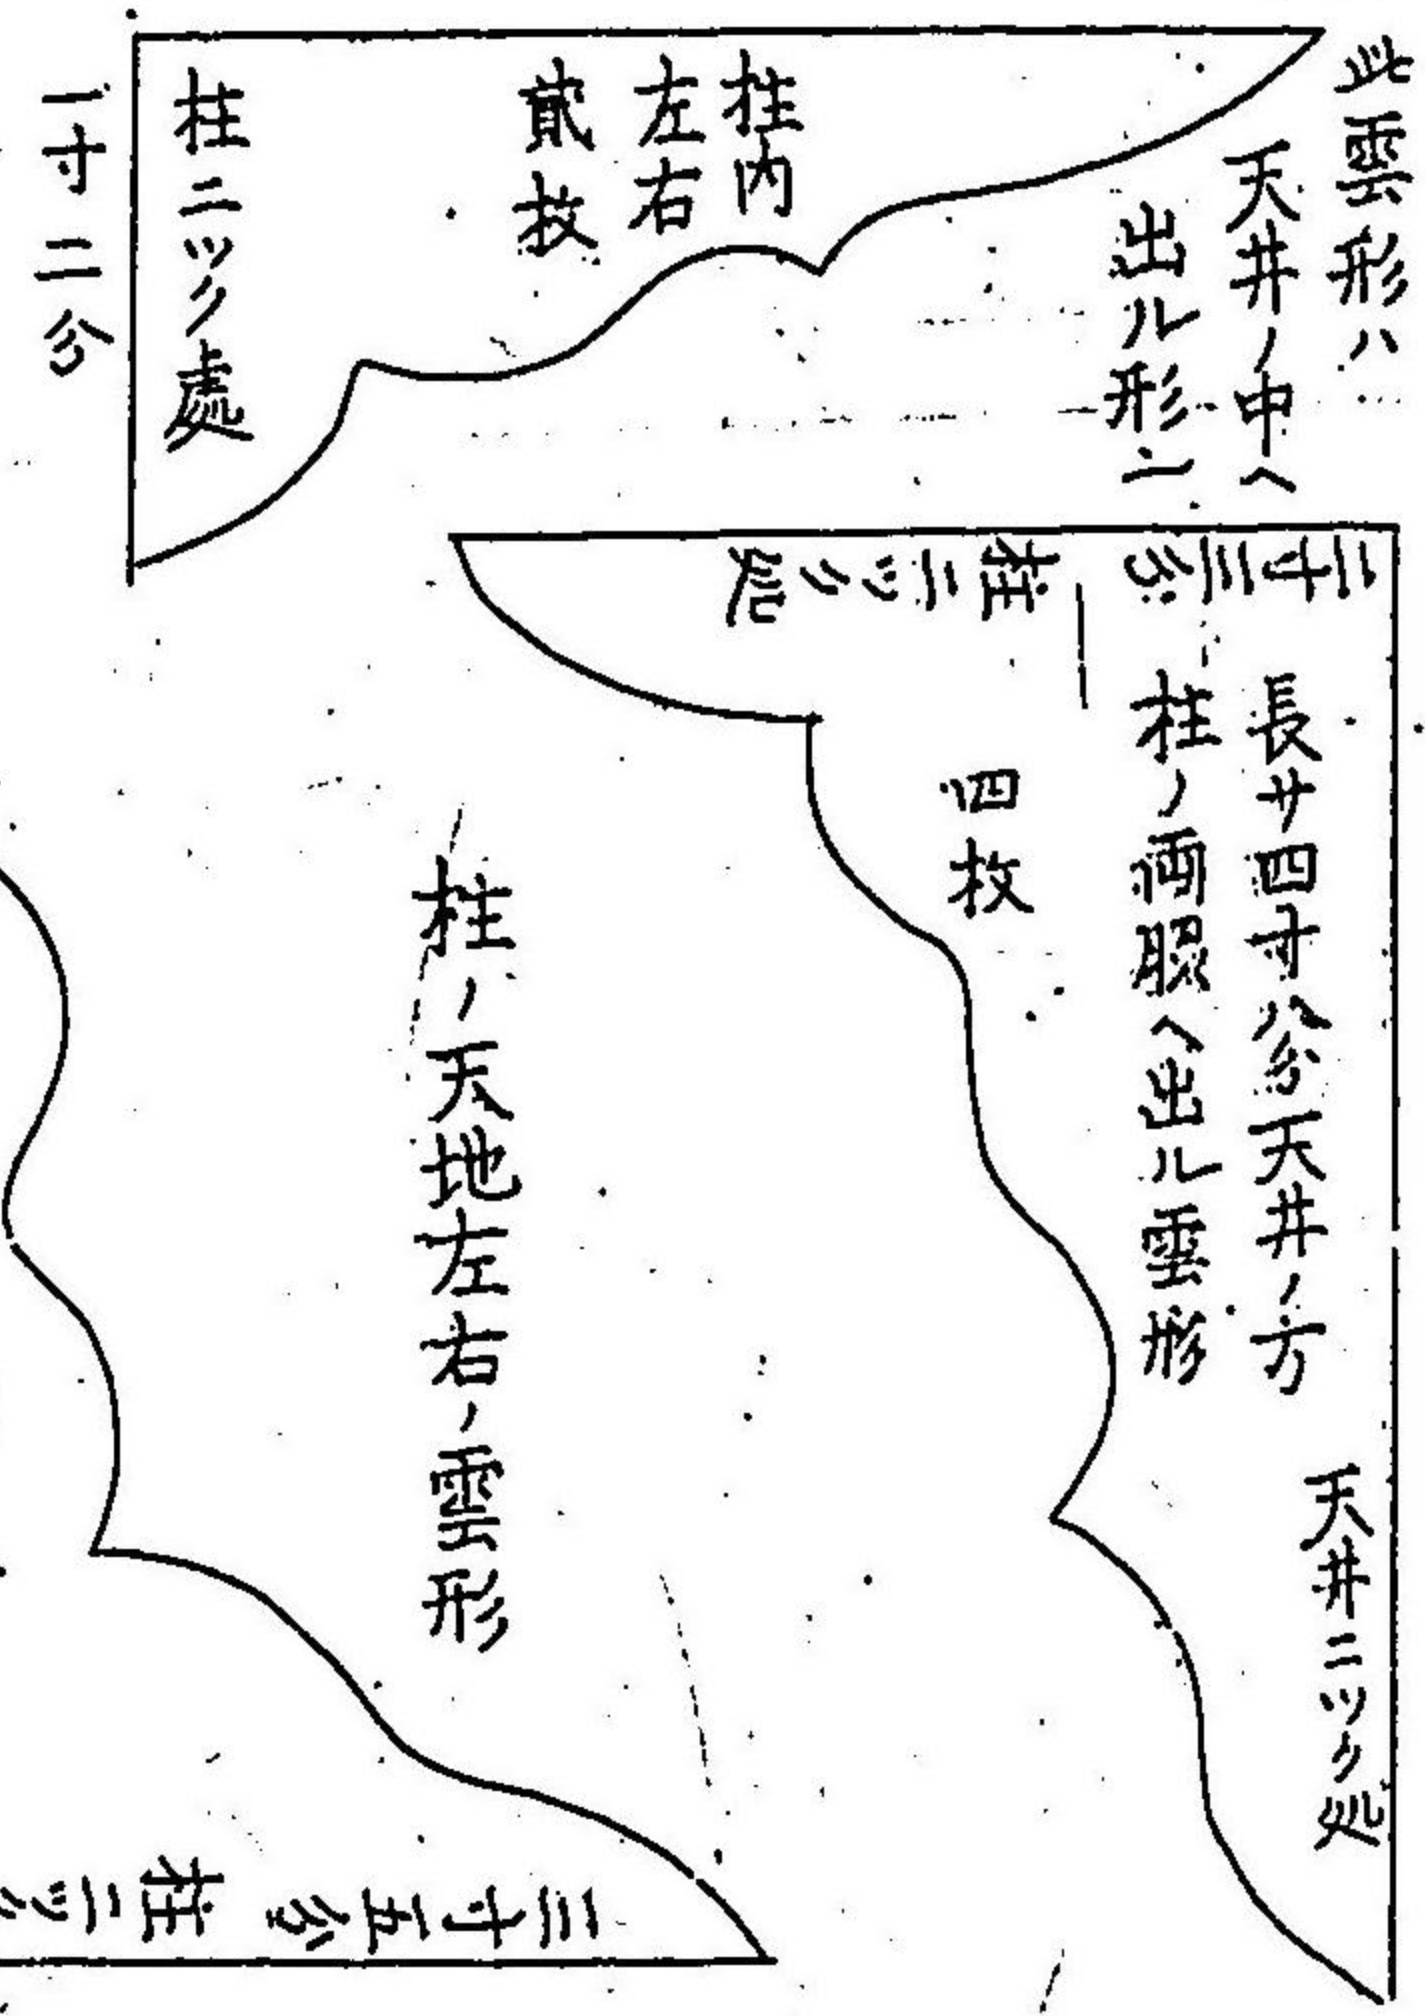 此雲形ハ
天井ノ中ヘ
出ル形ニ
柱内
左右
貳枚
柱ニツク處
一寸二分
三寸三分 柱ニツク処
長サ四寸八分天井ノ方
柱ノ両眼ヘ出ル雲形
四枚
天井ニツク処
柱ノ天地左右ノ雲形
三寸五分 柱ニツ